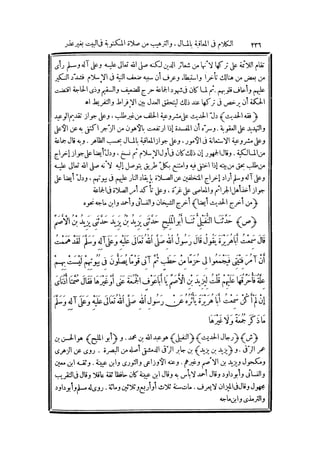 ٢٣٦ الكلام في المعاقبة بالمال. والترهيب من صلاة المكتوبة فى البيت بغير عذر
تقام اللائمة على تركها لأنها من شعائر الدين لكنه صلى الله تعالى عليه وعلى آله وسلم رأى
من بعض من هنالك تأخرا واستبطاء وعرف أن سببه ضعف النية فى الإسلام فشدد النكير
عليهم وأخاف قلوبهم. ثم لما كان فى شهود الجماعة حرج للضعيف والسقيم وذى الحاجة اقتضت
الحكمة أن يرخص فى تركها عند ذلك ليتحقق العدل بين الإفراط والتفريط اه
﴿فقه الحديث﴾ دل الحديث على مشروعية الحلف من غير طلب. وعلى جواز تقديم الوعيد
والتهديد على العقوبة. وسره أن المفسدة إذا ارتفعت بالأهون من الزجر اكتفى به عن الأعلى
وعلى مشروعية الاستعانة فى الأمور. وعلى جواز المعاقبة بالمال بحسب الظاهر. وبه قال جماعة
من المالكية. وقال الجمهور إن ذلك كان فى أول الإسلام ثم نسخ. ودل أيضا على جواز إخراج
من طلب بحق من بيته إذا اختفى فيه وامتنع بكل طريق يتوصل إليه لأنه صلى الله تعالى عليه
وعلى آله وسلم أراد إخراج المتخلفين عن الصلاة بإلقاء النار عليهم فى بيوتهم. ودل أيضا على
جواز أخذ أهل الجرائم والمعاصى على غرة. وعلى تأكد أمر الصلاة فى الجماعة
﴿من أخرج الحديث أيضا﴾ أخرج الشيخان والنسائى وأحمد وابن ماجه نحوه
﴿ص﴾ حَدَّثَنَا النُّفَيْلِيُّ ثَنَا أَبُو الْمَلِيحِ حَدَّثَنِي يَزِيدُ بْنُ يَزِيدَ حَدَّثَنِي يَزِيدُ بْنُ الْأَصَمِّ
قَالَ سَمِعْتُ أَبَا هُرَيْرَةَ يَقُولُ قَالَ رَسُولُ اللهِ صَلَّى اللهُ تَعَالَى عَلَيْهِ وَعَلَى آلِهِ وَسَلَّمَ لَقَدْ هَمَمْتُ
أَنْ آمُرَ فِتْيَتِي فَيَجْمَعُوا لِي حُزَمًا مِنْ حَطَبٍ ثُمَّ آتِيَ قَوْمًا يُصَلُّونَ فِي بُيُوتِهِمْ لَيْسَتْ بِهِمْ
عِلَّةٌ فَأُحَرِّقُهَا عَلَيْهِمْ قُلْتُ لِيَزِيدَ بْنِ الْأَصَمِّ يَا أَبَا عَوْفٍ الْجُمُعَةَ عَنَى أَوْ غَيْرَهَا فَقَالَ صُمَّتَا أُذُنَايَ
إِنْ لَمْ أَكُنْ سَمِعْتُ أَبَا هُرَيْرَةَ يَأْثُرُهُ عَنْ رَسُولِ اللهِ صَلَّى اللهُ تَعَالَى عَلَيْهِ وَعَلَى آلِهِ وَسَلَّمَ
مَا ذَكَرَ جُمُعَةً وَلَا غَيْرَهَا
﴿ش﴾ ﴿رجال الحديث﴾ ﴿النفيلى﴾ هو عبد الله بن محمد. و ﴿أبو المليح﴾ هو الحسن بن
عمر الرقى. و ﴿يزيد بن يزيد﴾ بن جابر الرقى الدمشقى أصله من البصرة. روى عن الزهرى
ومكحول ويزيد بن الأصم وغيرهم. وعنه الأوزاعى والثورى وابن عيينة. وثقه ابن معين
والنسائى وأبو داود وقال أحمد لا بأس به وقال ابن عيينة كان حافظا ثقة عاقلا وقال فى التقريب
مجهول وقال فى الميزان لا يعرف. مات سنة ثلاث أو أربع وثلاثين ومائة. روى له مسلم وأبو داود
والترمذى وابن ماجه